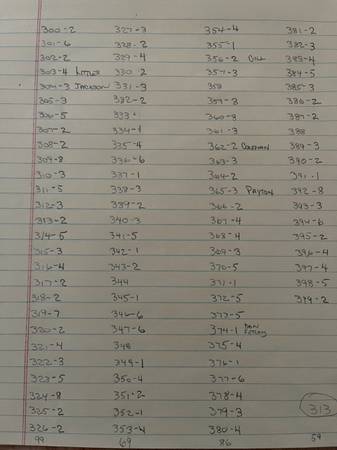 300-2
301-6
302-2
303-4 LITTLER
304-3 JACKSON
305-3
306-5
307-2
308-2
309-8
310-3
311-5
312-3
313-2
314-5
315-3
316-4
317-2
318-2
319-7
320-2
321-4
322-3
323-5
324-8
325-2
326-2
99
327-3
328-2
329-4
330-2
331-3
332-2
333
334-1
335-4
336-6
337-1
338-3
339-2
340-3
341-5
342-1
343-2
344
345-1
346-6
347-6
348
349-1
350-4
351-2
352-1
353-4
69
354-4
355-1
356-2 GILL
357-3
358
359-3
360-8
361-3
362-2 COLEMAN
363-3
364-2
365-3 PAYTON
366-2
367-4
368-4
369-3
370-5
371-1
372-5
373-5
374-1 DON
375-4
376-1
377-6
378-4
379-3
380-4
86
381-2
382-3
383-4
384-5
385-3
386-2
387-2
388
389-3
390-2
391-1
392-8
393-3
394-6
395-2
396-4
397-4
398-5
399-2
313
59